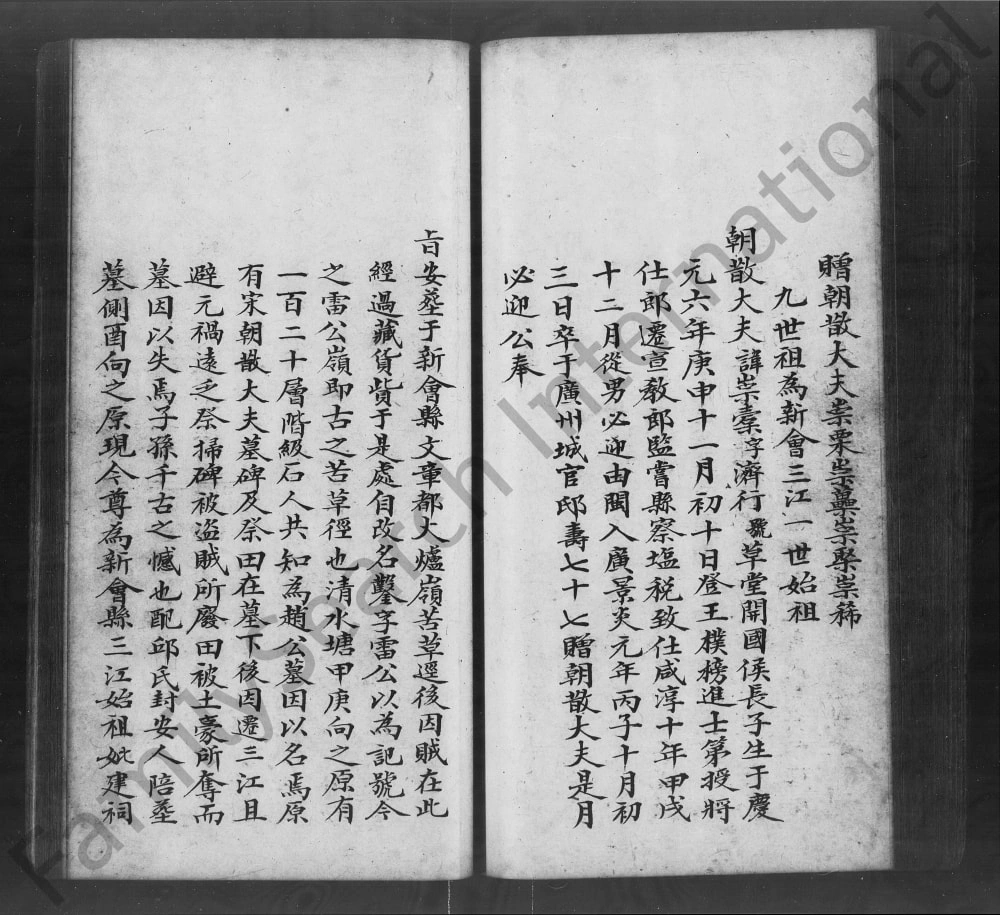 贈朝散大夫崇栗崇藥崇聚崇稀
九世祖為新會三江一世始祖
朝散大夫諱崇橐字濟行號草堂開國侯長子生于慶
元六年庚申十一月初十日登王樸榜進士第授將
仕郎遷宣教郎監嘗縣察塩稅致仕咸淳十年甲戌
十二月從男必迎由閩入廣景炎元年丙子十月初
三日卒于廣州城官邸壽七十七贈朝散大夫是月
必迎公奉
旨安塟于新會縣文章都大爐嶺苦草逕後因賊在此
經過藏貨貲于是處自改名鑿字雷公以為記號今
之雷公嶺即古之苦草徑也清水塘甲庚向之原有
一百二十層階級石人共知為趙公墓因以名焉原
有宋朝散大夫墓碑及祭田在墓下後因遷三江且
避元禍遠乏祭掃碑被盜賊所廢田被土豪所奪而
墓因以失焉子孫千古之憾也配邱氏封安人陪塟
墓側酉向之原現今尊為新會縣三江始祖妣建祠
FamilySearch International